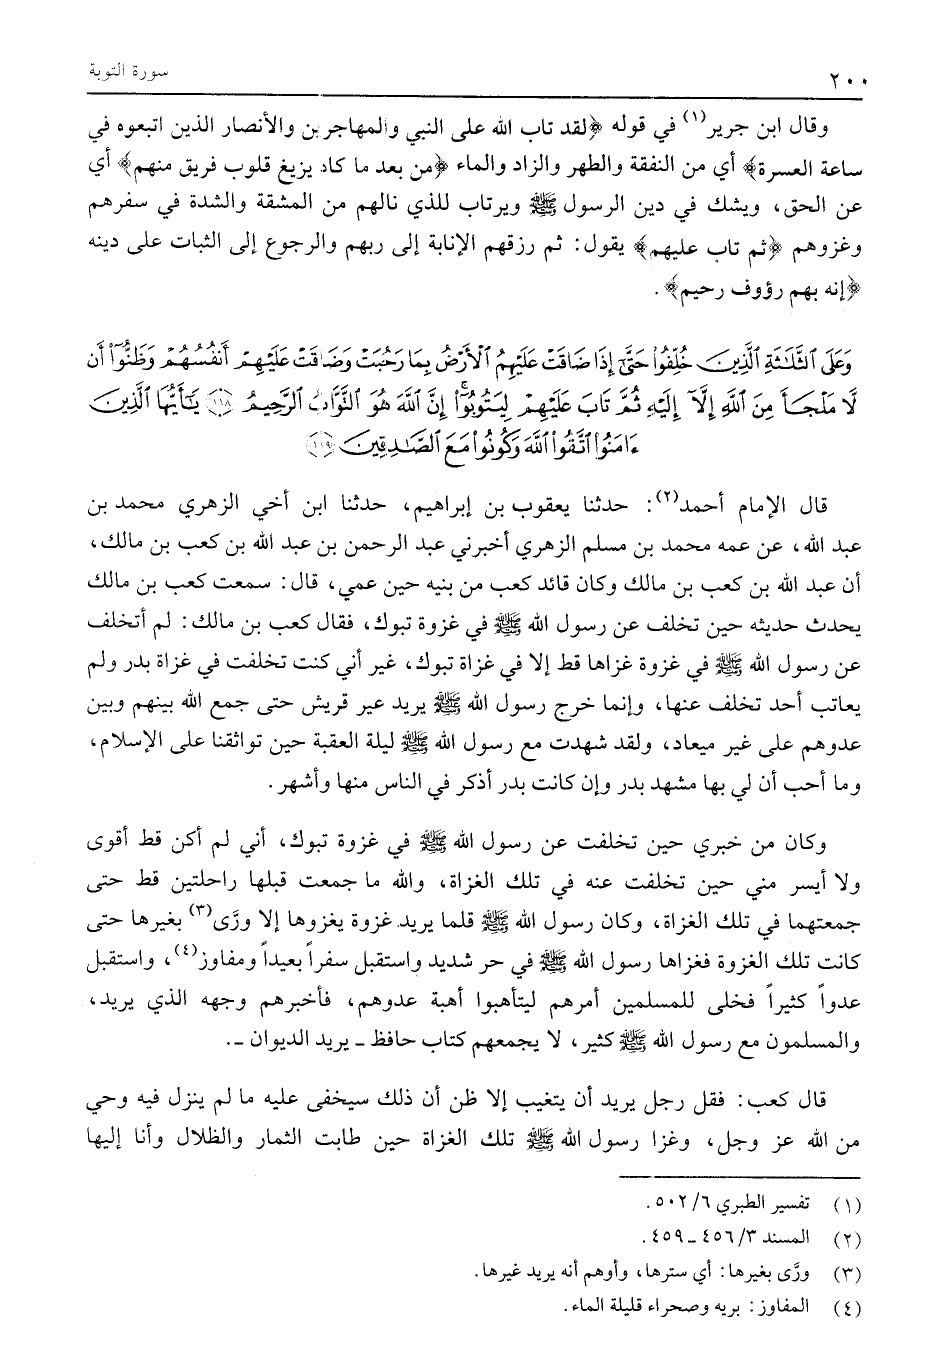 ٢٠٠
سورة التوبة
وقال ابن جرير(١) في قوله ﴿لقد تاب الله على النبي والمهاجرين والأنصار الذين اتبعوه في
ساعة العسرة﴾ أي من النفقة والطهر والزاد والماء ﴿من بعد ما كاد يزيغ قلوب فريق منهم﴾ أي
عن الحق، ويشك في دين الرسول ﷺ ويرتاب للذي نالهم من المشقة والشدة في سفرهم
وغزوهم ﴿ثم تاب عليهم﴾ يقول: ثم رزقهم الإنابة إلى ربهم والرجوع إلى الثبات على دينه
﴿إنه بهم رؤوف رحيم﴾.
وَعَلَى ٱلثَّلَٰثَةِ ٱلَّذِينَ خُلِّفُوا۟ حَتَّىٰٓ إِذَا ضَاقَتْ عَلَيْهِمُ ٱلْأَرْضُ بِمَا رَحُبَتْ وَضَاقَتْ عَلَيْهِمْ أَنفُسُهُمْ وَظَنُّوٓا۟ أَن
لَّا مَلْجَأَ مِنَ ٱللَّهِ إِلَّآ إِلَيْهِ ثُمَّ تَابَ عَلَيْهِمْ لِيَتُوبُوٓا۟ۚ إِنَّ ٱللَّهَ هُوَ ٱلتَّوَّابُ ٱلرَّحِيمُ ﴿١١٨﴾ يَٰٓأَيُّهَا ٱلَّذِينَ
ءَامَنُوا۟ ٱتَّقُوا۟ ٱللَّهَ وَكُونُوا۟ مَعَ ٱلصَّٰدِقِينَ ﴿١١٩﴾
قال الإمام أحمد(٢): حدثنا يعقوب بن إبراهيم، حدثنا ابن أخي الزهري محمد بن
عبد الله، عن عمه محمد بن مسلم الزهري أخبرني عبد الرحمن بن عبد الله بن كعب بن مالك،
أن عبد الله بن كعب بن مالك وكان قائد كعب من بنيه حين عمي، قال: سمعت كعب بن مالك
يحدث حديثه حين تخلف عن رسول الله ﷺ في غزوة تبوك، فقال كعب بن مالك: لم أتخلف
عن رسول الله ﷺ في غزوة غزاها قط إلا في غزاة تبوك، غير أني كنت تخلفت في غزاة بدر ولم
يعاتب أحد تخلف عنها، وإنما خرج رسول الله ﷺ يريد عير قريش حتى جمع الله بينهم وبين
عدوهم على غير ميعاد، ولقد شهدت مع رسول الله ﷺ ليلة العقبة حين تواثقنا على الإسلام،
وما أحب أن لي بها مشهد بدر وإن كانت بدر أذكر في الناس منها وأشهر.
وكان من خبري حين تخلفت عن رسول الله ﷺ في غزوة تبوك، أني لم أكن قط أقوى
ولا أيسر مني حين تخلفت عنه في تلك الغزاة، والله ما جمعت قبلها راحلتين قط حتى
جمعتهما في تلك الغزاة، وكان رسول الله ﷺ قلما يريد غزوة يغزوها إلا ورَّى(٣) بغيرها حتى
كانت تلك الغزوة فغزاها رسول الله ﷺ في حر شديد واستقبل سفراً بعيداً ومفاوز(٤)، واستقبل
عدواً كثيراً فخلى للمسلمين أمرهم ليتأهبوا أهبة عدوهم، فأخبرهم وجهه الذي يريد،
والمسلمون مع رسول الله ﷺ كثير، لا يجمعهم كتاب حافظ ـ يريد الديوان ـ.
قال كعب: فقل رجل يريد أن يتغيب إلا ظن أن ذلك سيخفى عليه ما لم ينزل فيه وحي
من الله عز وجل، وغزا رسول الله ﷺ تلك الغزاة حين طابت الثمار والظلال وأنا إليها
(١) تفسير الطبري ٦/ ٥٠٢.
(٢) المسند ٣/ ٤٥٦ ـ ٤٥٩.
(٣) ورَّى بغيرها: أي سترها، وأوهم أنه يريد غيرها.
(٤) المفاوز: بريه وصحراء قليلة الماء.